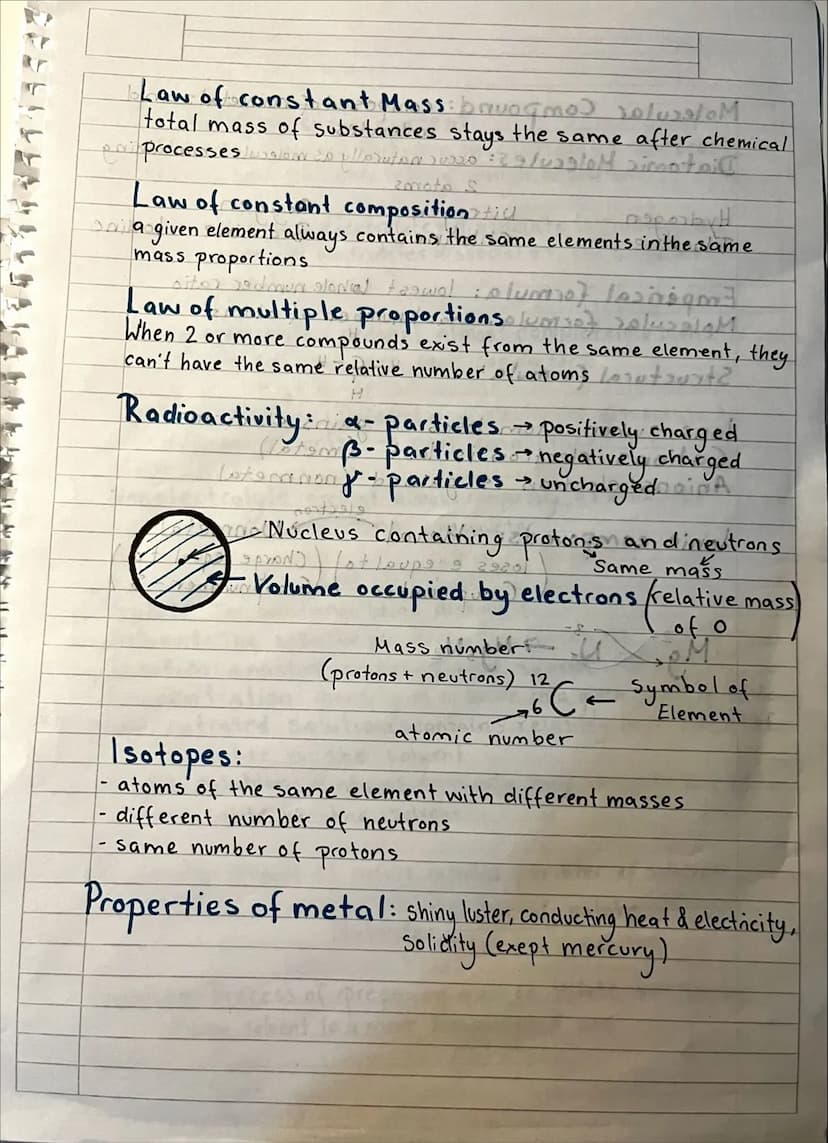 Law of constant Mass:
total mass of substances stays the same after chemical
processes
Law of constant composition
a given element always contains the same elements in the same
mass proportions
Law of multiple proportions
When 2 or more compounds exist from the same element, they
can't have the same relative number of atoms
Radioactivity: α- particles → positively charged
β- particles → negatively charged
γ - particles → uncharged
Nucleus containing protons and neutrons
Same mass
Volume occupied by electrons (relative mass
of 0)
Mass number:
(protons + neutrons) 12
6 C ← Symbol of
Element
atomic number
Isotopes:
- atoms of the same element with different masses
- different number of neutrons
- same number of protons
Properties of metal: shiny luster, conducting heat & electricity,
Solidity (exept mercury)